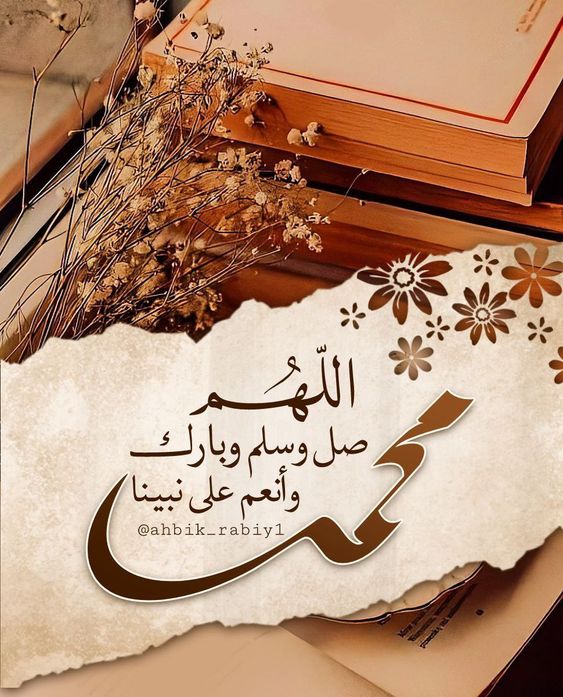 اللّهُم
صل وسلم وبارك
وأنعم على نبينا
محمد
@ahbik_rabiy1